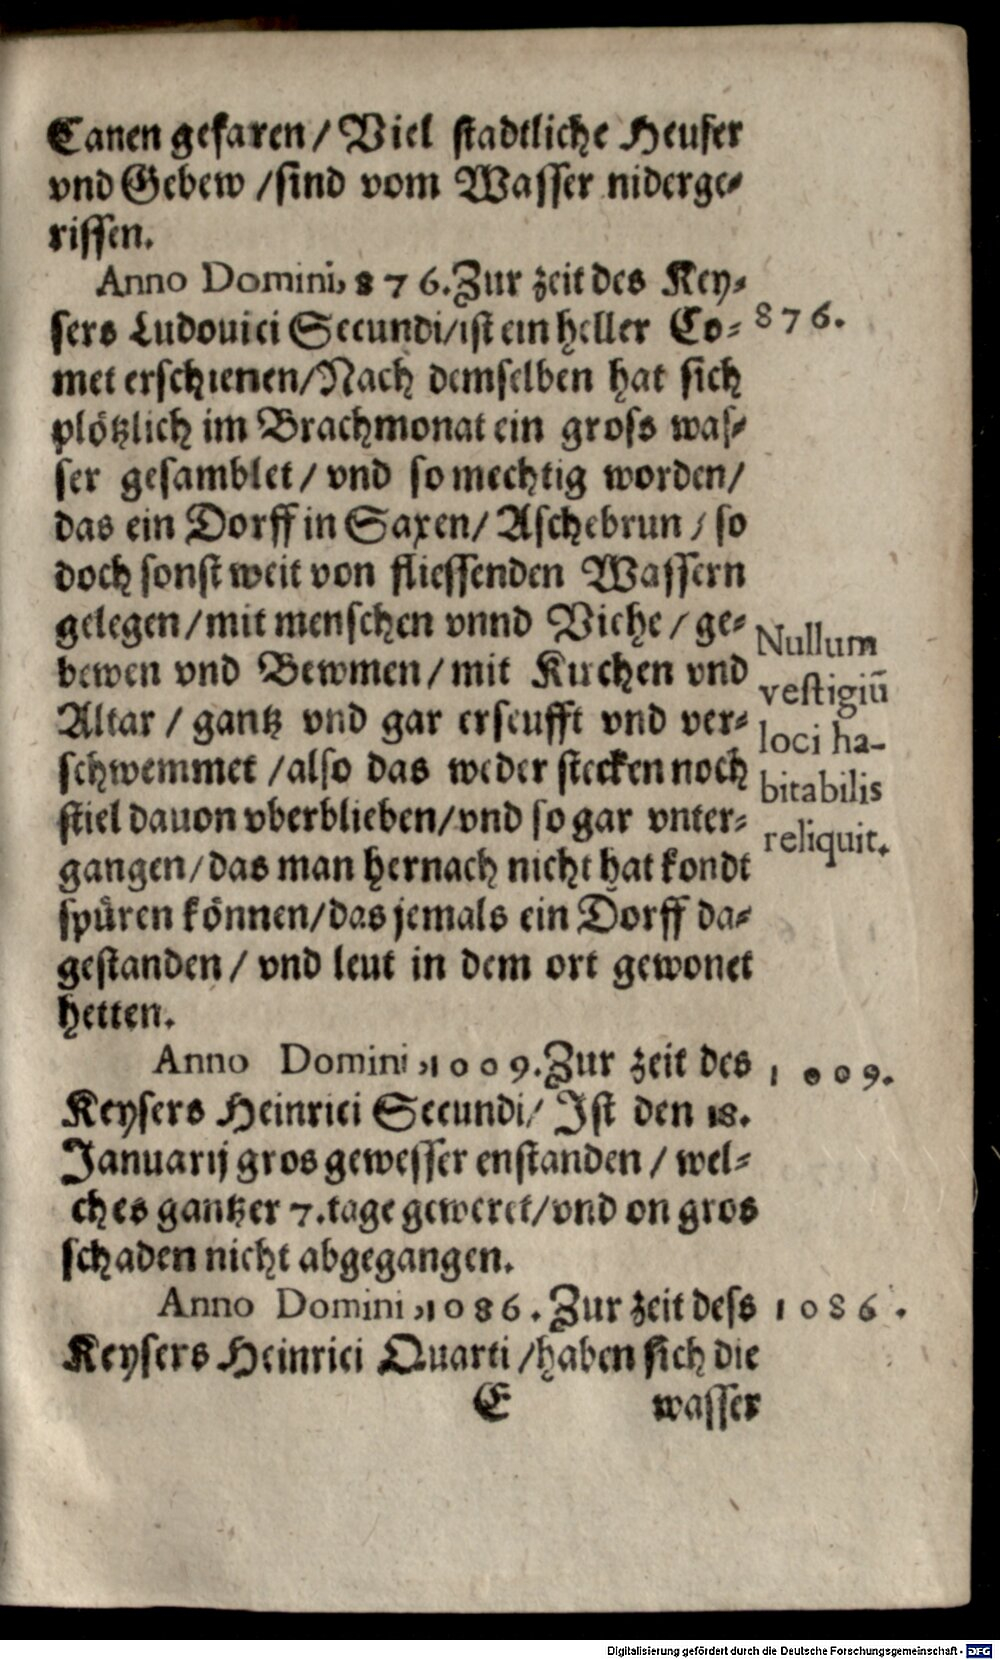 Canen gefaren / Viel stadtliche Heuser
vnd Gebew / sind vom Wasser niderge-
rissen.
Anno Domini, 876. Zur zeit des Key-
sers Ludouici Secundi / ist ein heller Co-
met erschienen / Nach demselben hat sich
plötzlich im Brachmonat ein gross was-
ser gesamblet / vnd so mechtig worden /
das ein Dorff in Saxen / Aschebrun / so
doch sonst weit von fliessenden Wassern
gelegen / mit menschen vnnd Viehe / ge-
bewen vnd Bewmen / mit Kirchen vnd
Altar / gantz vnd gar erseufft vnd ver-
schwemmet / also das weder stecken noch
stiel dauon vberblieben / vnd so gar vnter-
gangen / das man hernach nicht hat kondt
spüren können / das jemals ein Dorff da-
gestanden / vnd leut in dem ort gewonet
hetten.
Anno Domini, 1009. Zur zeit des
Keysers Heinrici Secundi / Ist den 18.
Januarij gros gewesser enstanden / wel-
ches gantzer 7. tage geweret / vnd on gros
schaden nicht abgegangen.
Anno Domini, 1086. Zur zeit dess
Keysers Heinrici Quarti / haben sich die
E wasser
876.
Nullum
vestigiū
loci ha-
bitabilis
reliquit.
1009.
1086.
Digitalisierung gefördert durch die Deutsche Forschungsgemeinschaft - DFG